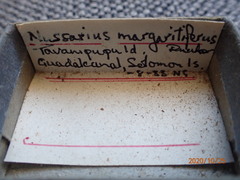 Nassarius margaritiferus
Tavanipupu Id, Dunker
Guadalcanal, Solomon Is
-8-22 NS
2020/10/